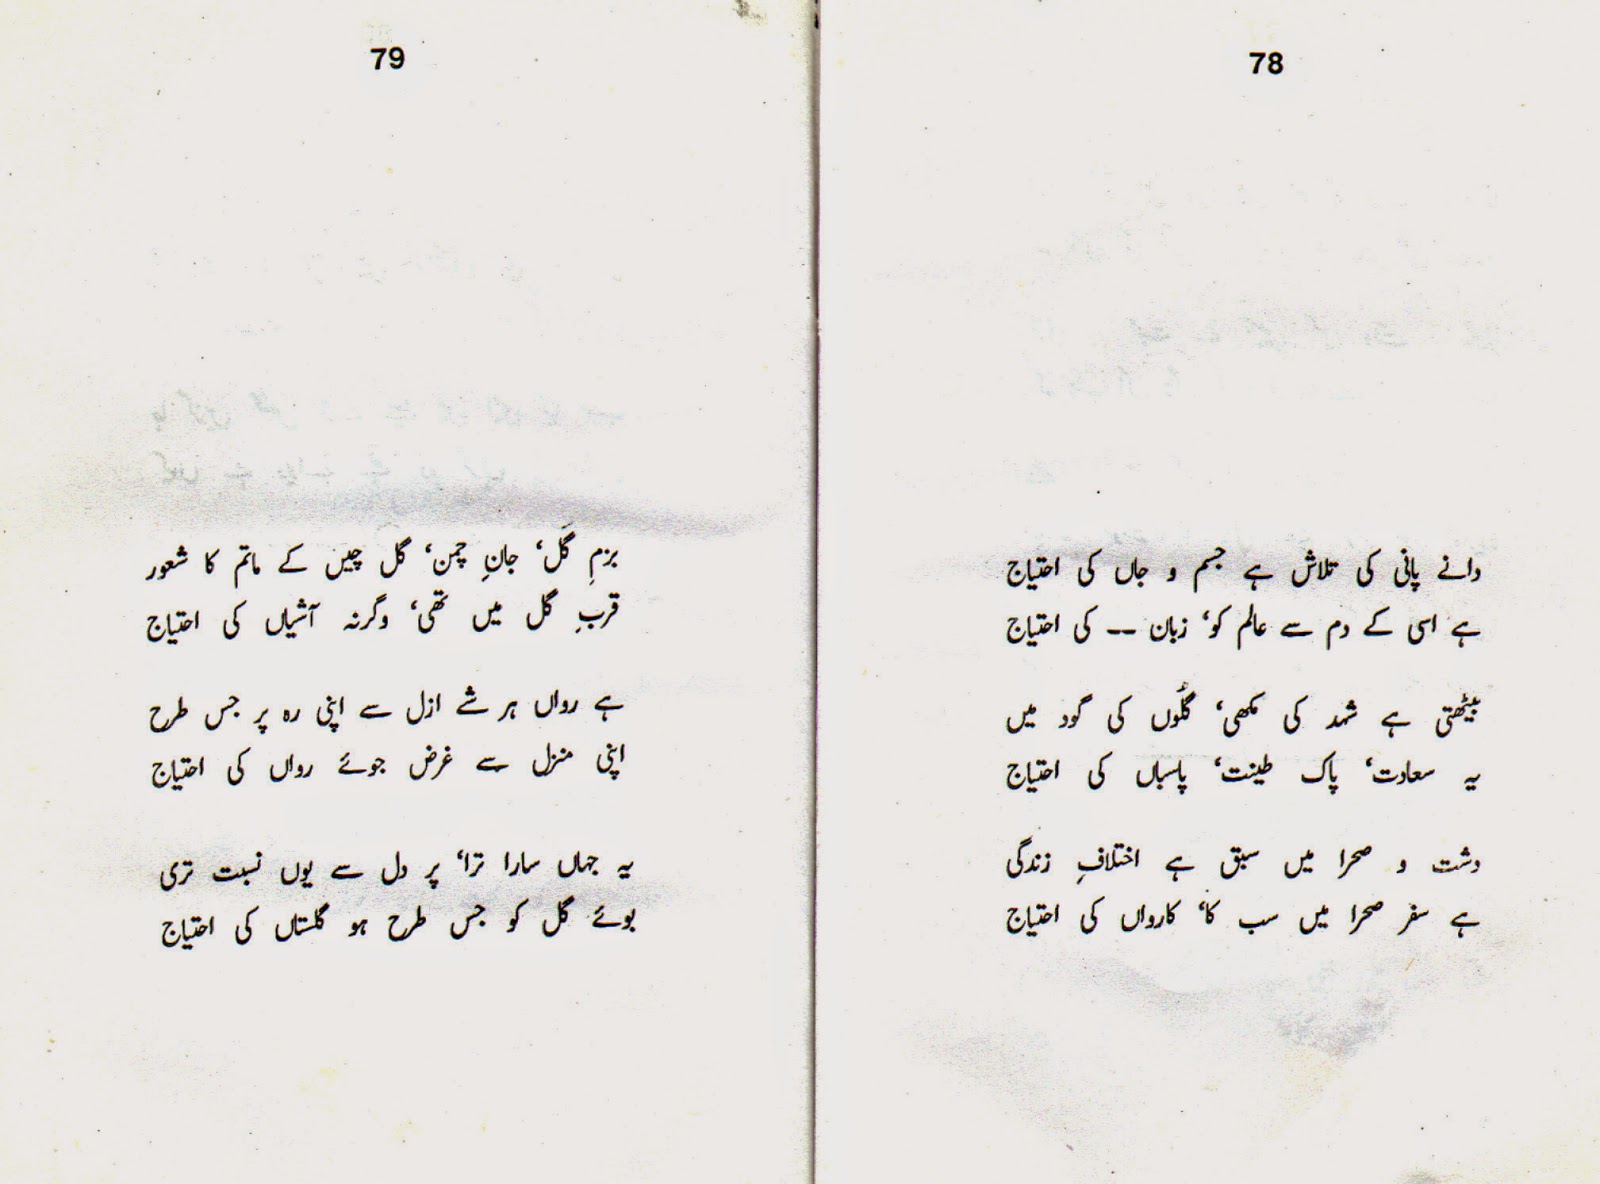 78
دانے پانی کی تلاش ہے جسم و جاں کی احتیاج
ہے اسی کے دم سے عالم کو، زبان -- کی احتیاج
بیٹھتی ہے شہد کی مکھی، گُلوں کی گود میں
یہ سعادت، پاک طینت، پاسباں کی احتیاج
دشت و صحرا میں سبق ہے اختلافِ زندگی
ہے سفر صحرا میں سب کا، کارواں کی احتیاج
79
بزمِ گل، جانِ چمن، گل چیں کے ماتم کا شعور
قربِ گل میں تھی، وگرنہ آشیاں کی احتیاج
ہے رواں ہر شے ازل سے اپنی رہ پر جس طرح
اپنی منزل سے غرض جوئے رواں کی احتیاج
یہ جہاں سارا ترا، پر دل سے یوں نسبت تری
بوئے گل کو جس طرح ہو گلستاں کی احتیاج